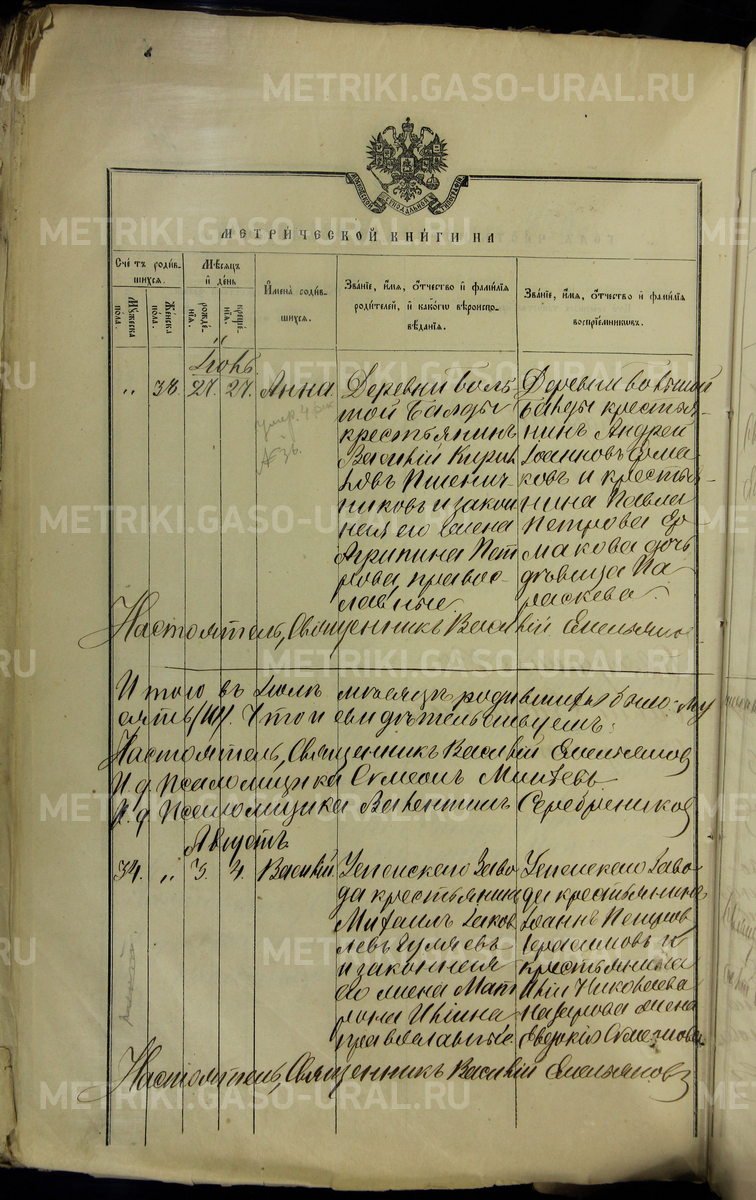 METRIKI.GASO-URAL.RU
МЕТРИ́ЧЕСКОЙ КНИ́ГИ НА
Сче́тъ роди́в-
шихся.
Мꙋжеска
пола.
Же́нска
пола.
Мѣ́сяцъ
и҆ де́нь
рожде́-
нїѧ.
креще́-
нїѧ.
И҆мена̀ роди́в-
шихся.
Зва́нїе, и҆́мѧ, ѻ҆́тчество и҆ фами́лїѧ
роди́телей, и҆ како́гѡ вѣроисп-
вѣ́данїѧ.
Зва́нїе, и҆́мѧ, ѻ҆́тчество и҆ фами́лїѧ
воспрїе́мникѡвъ.
Іюль
" 38. 27. 27. Анна
Деревни Боль
шой Брусяны
крестьянинъ
Василій
Пшенич-
никовъ и закон
ная его жена
Агрипина Пет
рова правос-
лавные.
Деревни Большой
крестья-
нинъ Андрей
Іоанновъ Ерма-
ковъ и крестья-
нина Павла
Петрова Ер
макова дочь
дѣвица Па
раскева.
Настоятель, Священникъ Василій Емельянов
Итого въ Іюлѣ мѣсяцѣ родившихся было му
Что и свидѣтельствуемъ:
Настоятель, Священникъ Василій Емельянов
И. д. Псаломщика Сумеонъ
И. д. Псаломщика Валентинъ Серебренников
Августъ
34. " 3. 4. Василій.
Успенскаго Заво
да крестьянинъ
Михаилъ Іаков
левъ Гуляевъ
и законная
его жена Мат
рона Ильина
православные.
Успенскаго Заво-
да крестьянинъ
Іоаннъ
Герасимовъ и
крестьянина
Иліи Николаева
Назарова жена
Евдокія Сумеонова.
Настоятель, Священникъ Василій Емельянов